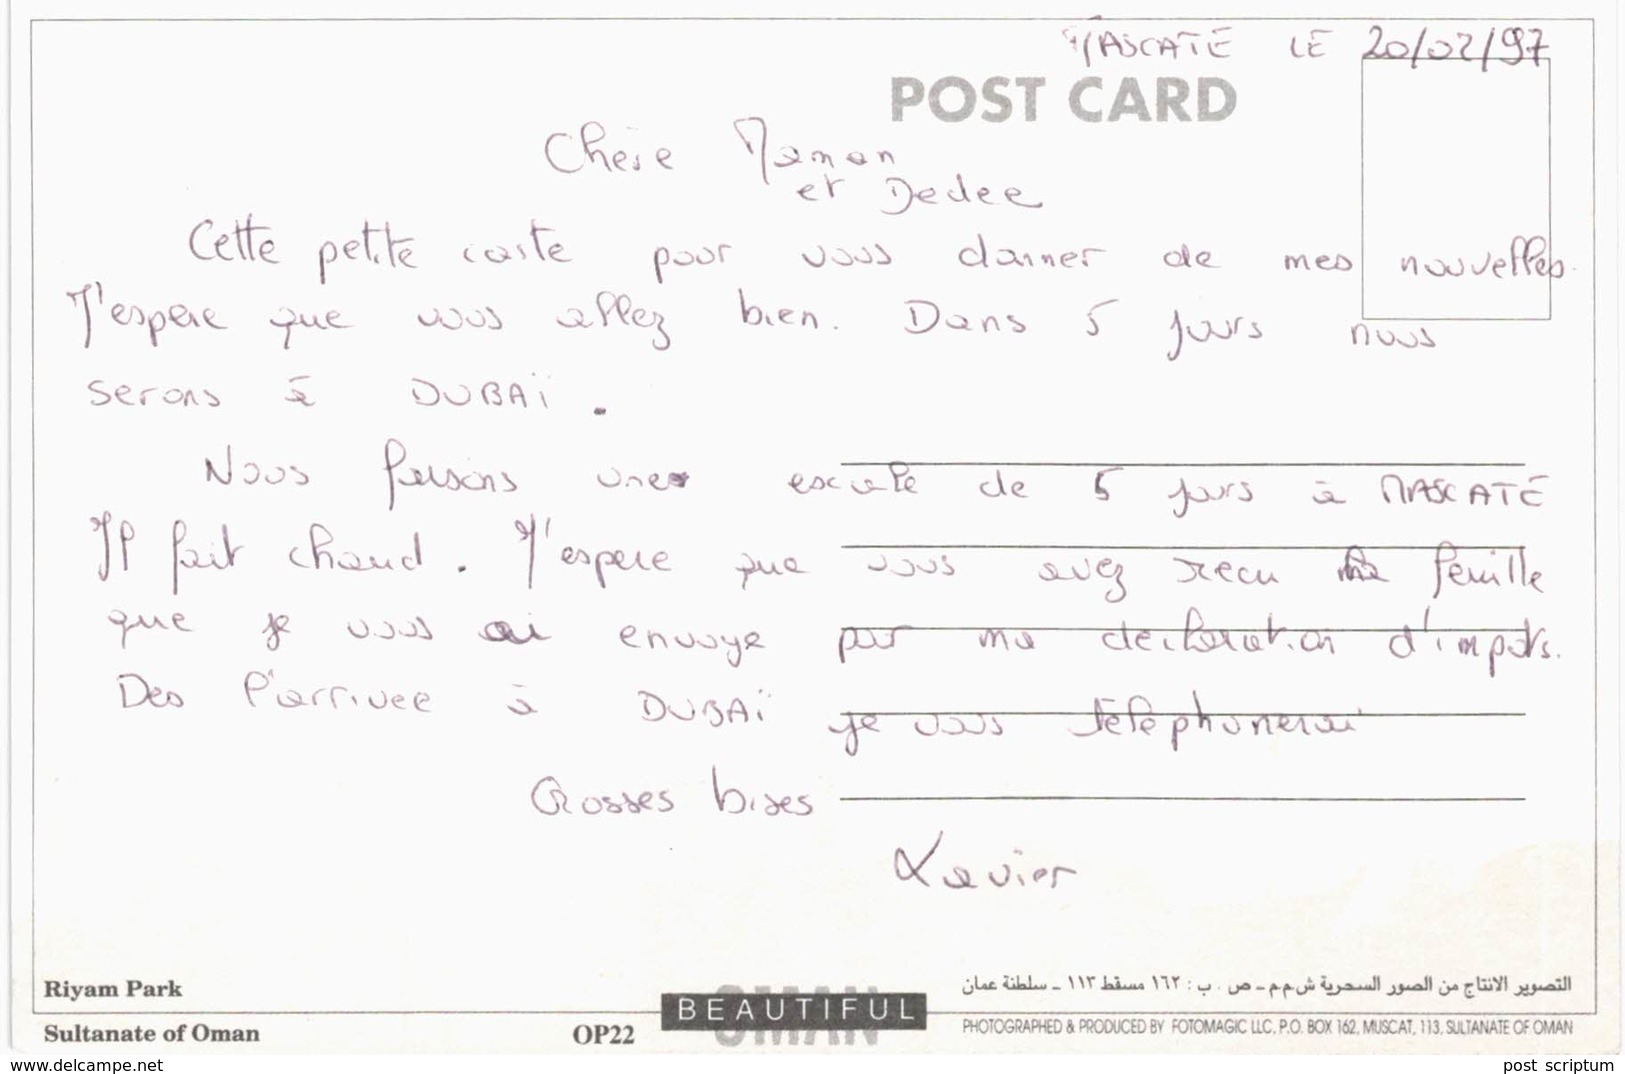 MASCATE LE 20/02/97
POST CARD
Chère Maman
et Dedee
Cette petite carte pour vous donner de mes nouvelles.
J'espere que vous allez bien. Dans 5 jours nous
serons à DUBAÏ.
Nous faisons une escale de 5 jours à MASCATE
Il fait chaud. J'espere que vous avez recu la feuille
que je vous ai envoye par ma declaration d'impots.
Des l'arrivee à DUBAÏ je vous télephonerai
Grosses bises
Xavier
Riyam Park
Sultanate of Oman
OP22
BEAUTIFUL
OMAN
التصوير الانتاج من الصور السحرية ش م م - ص . ب : ١٦٢ مسقط ١١٣ - سلطنة عمان
PHOTOGRAPHED & PRODUCED BY FOTOMAGIC LLC, P.O. BOX 162, MUSCAT, 113, SULTANATE OF OMAN
www.delcampe.net
post scriptum